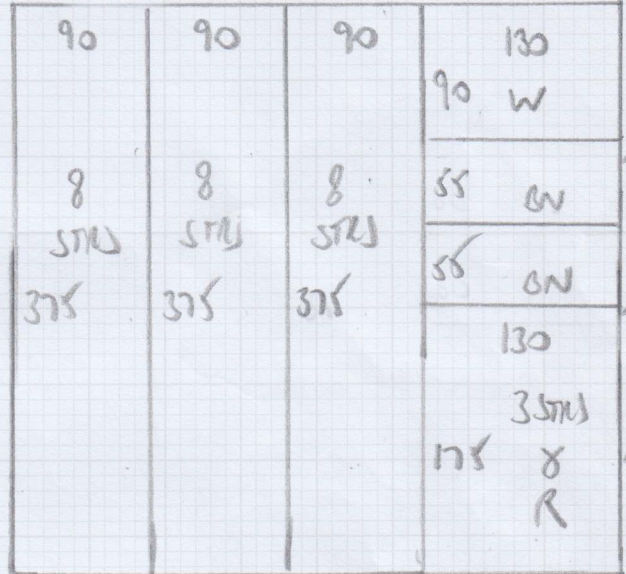 90
8
STRS
375
90
8
STRS
375
90
8
STRS
375
130
90 W
55 BN
55 BN
130
3 STRS
175 8
R